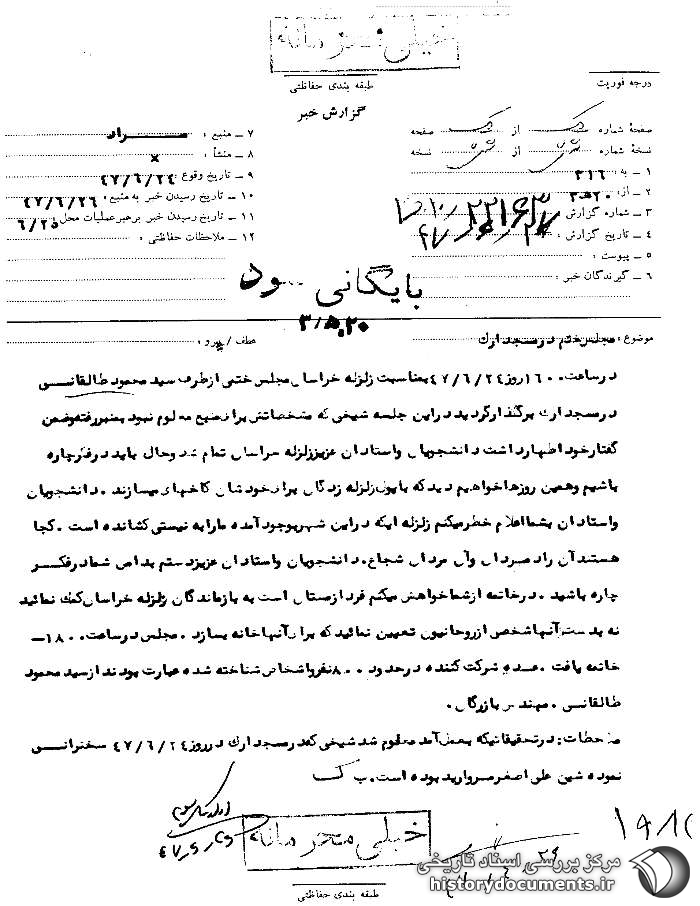 خیلی محرمانه
طبقه بندی حفاظتی
درجه فوریت
گزارش خبر
صفحهٔ شماره یک از یک صفحه
نسخهٔ شماره از نسخه
۱ ـ به : ۳۱۶
۲ ـ از : ۲۰ ﻫ ۳
۳ ـ شماره گزارش :
۴ ـ تاریخ گزارش :
۵ ـ پیوست :
۶ ـ گیرندگان خبر :
۷ ـ منبع : مراد
۸ ـ منشأ : x
۹ ـ تاریخ وقوع : ۴۷/۶/۲۴
۱۰ ـ تاریخ رسیدن خبر به منبع : ۴۷/۶/۲۶
۱۱ ـ تاریخ رسیدن خبر برهبر عملیات محل : ۶/۲۵
۱۲ ـ ملاحظات حفاظتی :
بایگانی شود
۲۰ ﻫ ۳
موضوع : مجلس ختم در مسجد ارک
عطف / پیرو :
درساعت ۱۶۰۰ روز ۴۷/۶/۲۴ بمناسبت زلزله خراسان مجلس ختمی ازطرف سید محمود طالقانی
درمسجد ارک برگذار گردید دراین جلسه شیخی که مشخصاتش برای منبع معلوم نبود بمنبر رفته وضمن
گفتارخود اظهارداشت دانشجویان واستادان عزیز زلزله خراسان تمام شد وحال باید درفکرچاره
باشیم وهمین روزها خواهیم دید که با پول زلزله زدگان برای خودشان کاخهای میسازند . دانشجویان
واستادان بشما اعلام خطر میکنم زلزله ایکه دراین شهر بوجود آمده ما را به نیستی کشانده است . کجا
هستند آن رادمردان وآن مردان شجاع . دانشجویان واستادان عزیز دستم بدامن شما درفکر
چاره باشید . درخاتمه ازشما خواهش میکنم فردا زمستان است به بازماندگان زلزله خراسان کمک نمائید
نه بدست آنها شخصی ازروحانیون تعیین نمائید که برای آنها خانه بسازد . مجلس درساعت ۱۸۰۰
خاتمه یافت . عده شرکت کننده درحدود ۸۰۰ نفر واشخاص شناخته شده عبارت بودند از سید محمود
طالقانی . مهندس بازرگان .
ملاحظات : درتحقیقاتیکه بعمل آمد معلوم شد شیخی که درمسجد ارک درروز ۴۷/۶/۲۴ سخنرانی
نموده شیخ علی اصغر مروارید بوده است .
خیلی محرمانه
طبقه بندی حفاظتی
مرکز بررسی اسناد تاریخی
historydocuments.ir